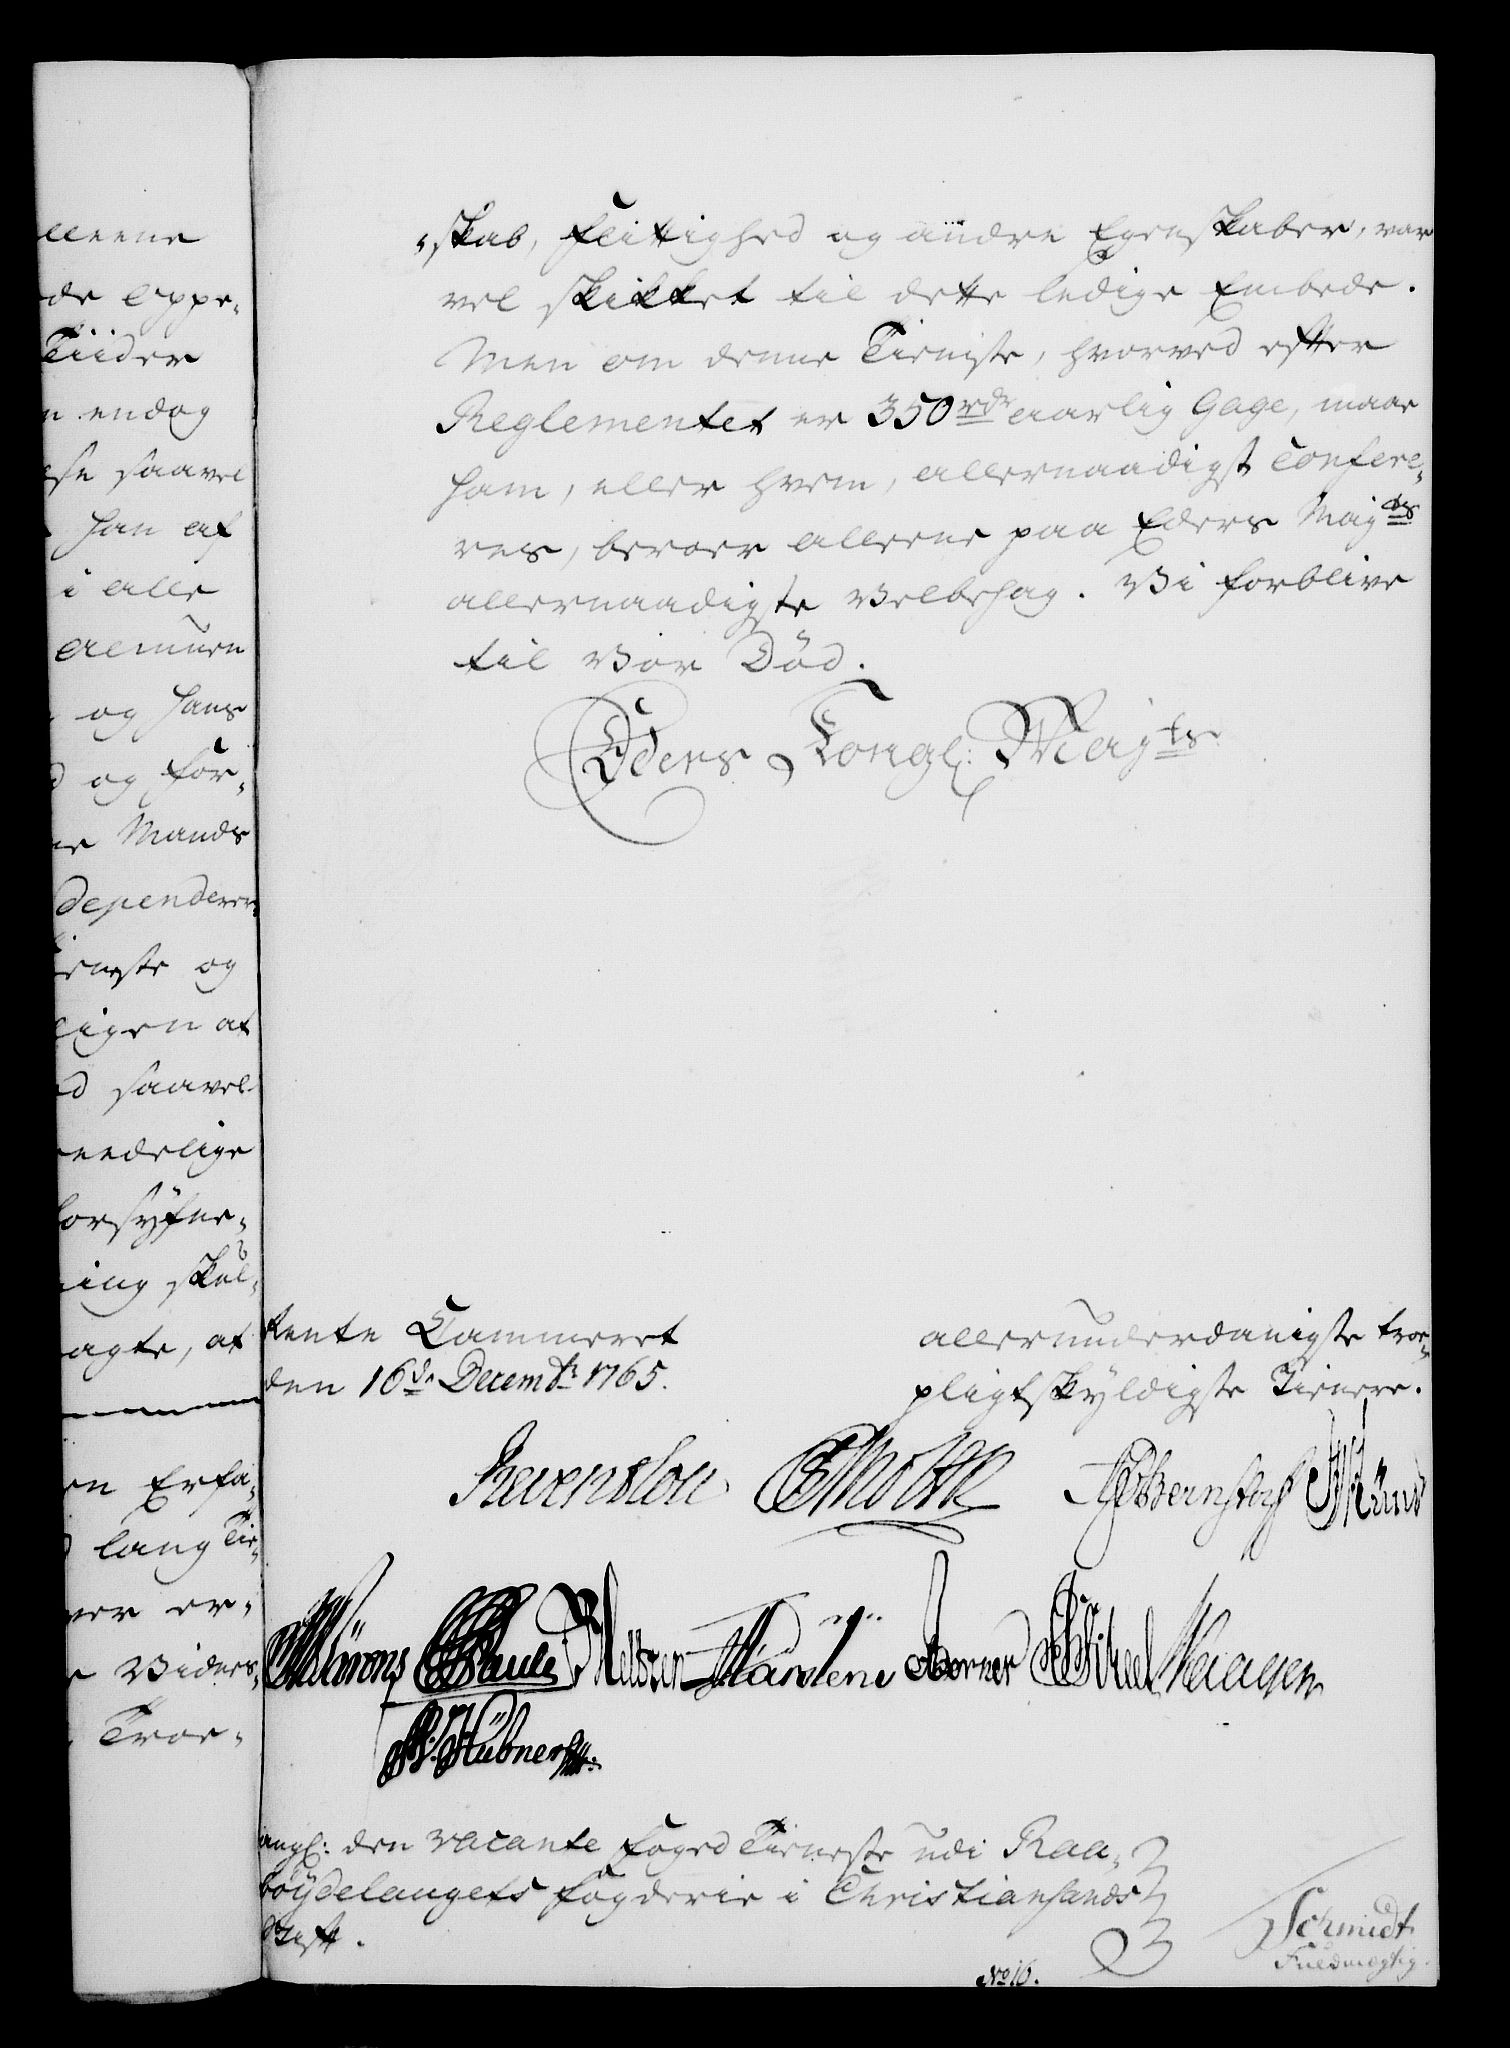 lleene
de Appe-
Tiider
n endog
se saavel
han af
i alle
Almuen
og hans
d og for-
ne Mands
dependerer
ieneste og
ligen at
ed saavel
endelige
forsyfne-
ing skul-
agte, at
en Erfa-
d lang Tie-
ver er-
e Vidnes-
Troe-
-skab, Flittighed og andre Egenskaber, var
vel skikket til dette ledige Embede.
Men om denne Tieniste, hvorved efter
Reglementet er 350 rdr aarlig Gage, maae
ham, eller hvem, allernaadigst confere-
res, beroer alleene paa Eders Mayts
allernaadigste Velbehag. Vi forblive
til Vor Död.
Eders Kongl: Mayts
Rente Cammeret
den 16de Decembr 1765.
allerunderdanigste troe-
pligtskyldigste Tienere.
Reventlou AGMoltke JHEBernstorff
Nörons Schule Meltzer Marslene Aerner Waagen
P: Hübner
angl: den vacante Foged Tieneste udi Raa-
bøydelaugets Fogderie i Christiansands
Stift.
Schmidt
Fuldmægtig.
No 16.